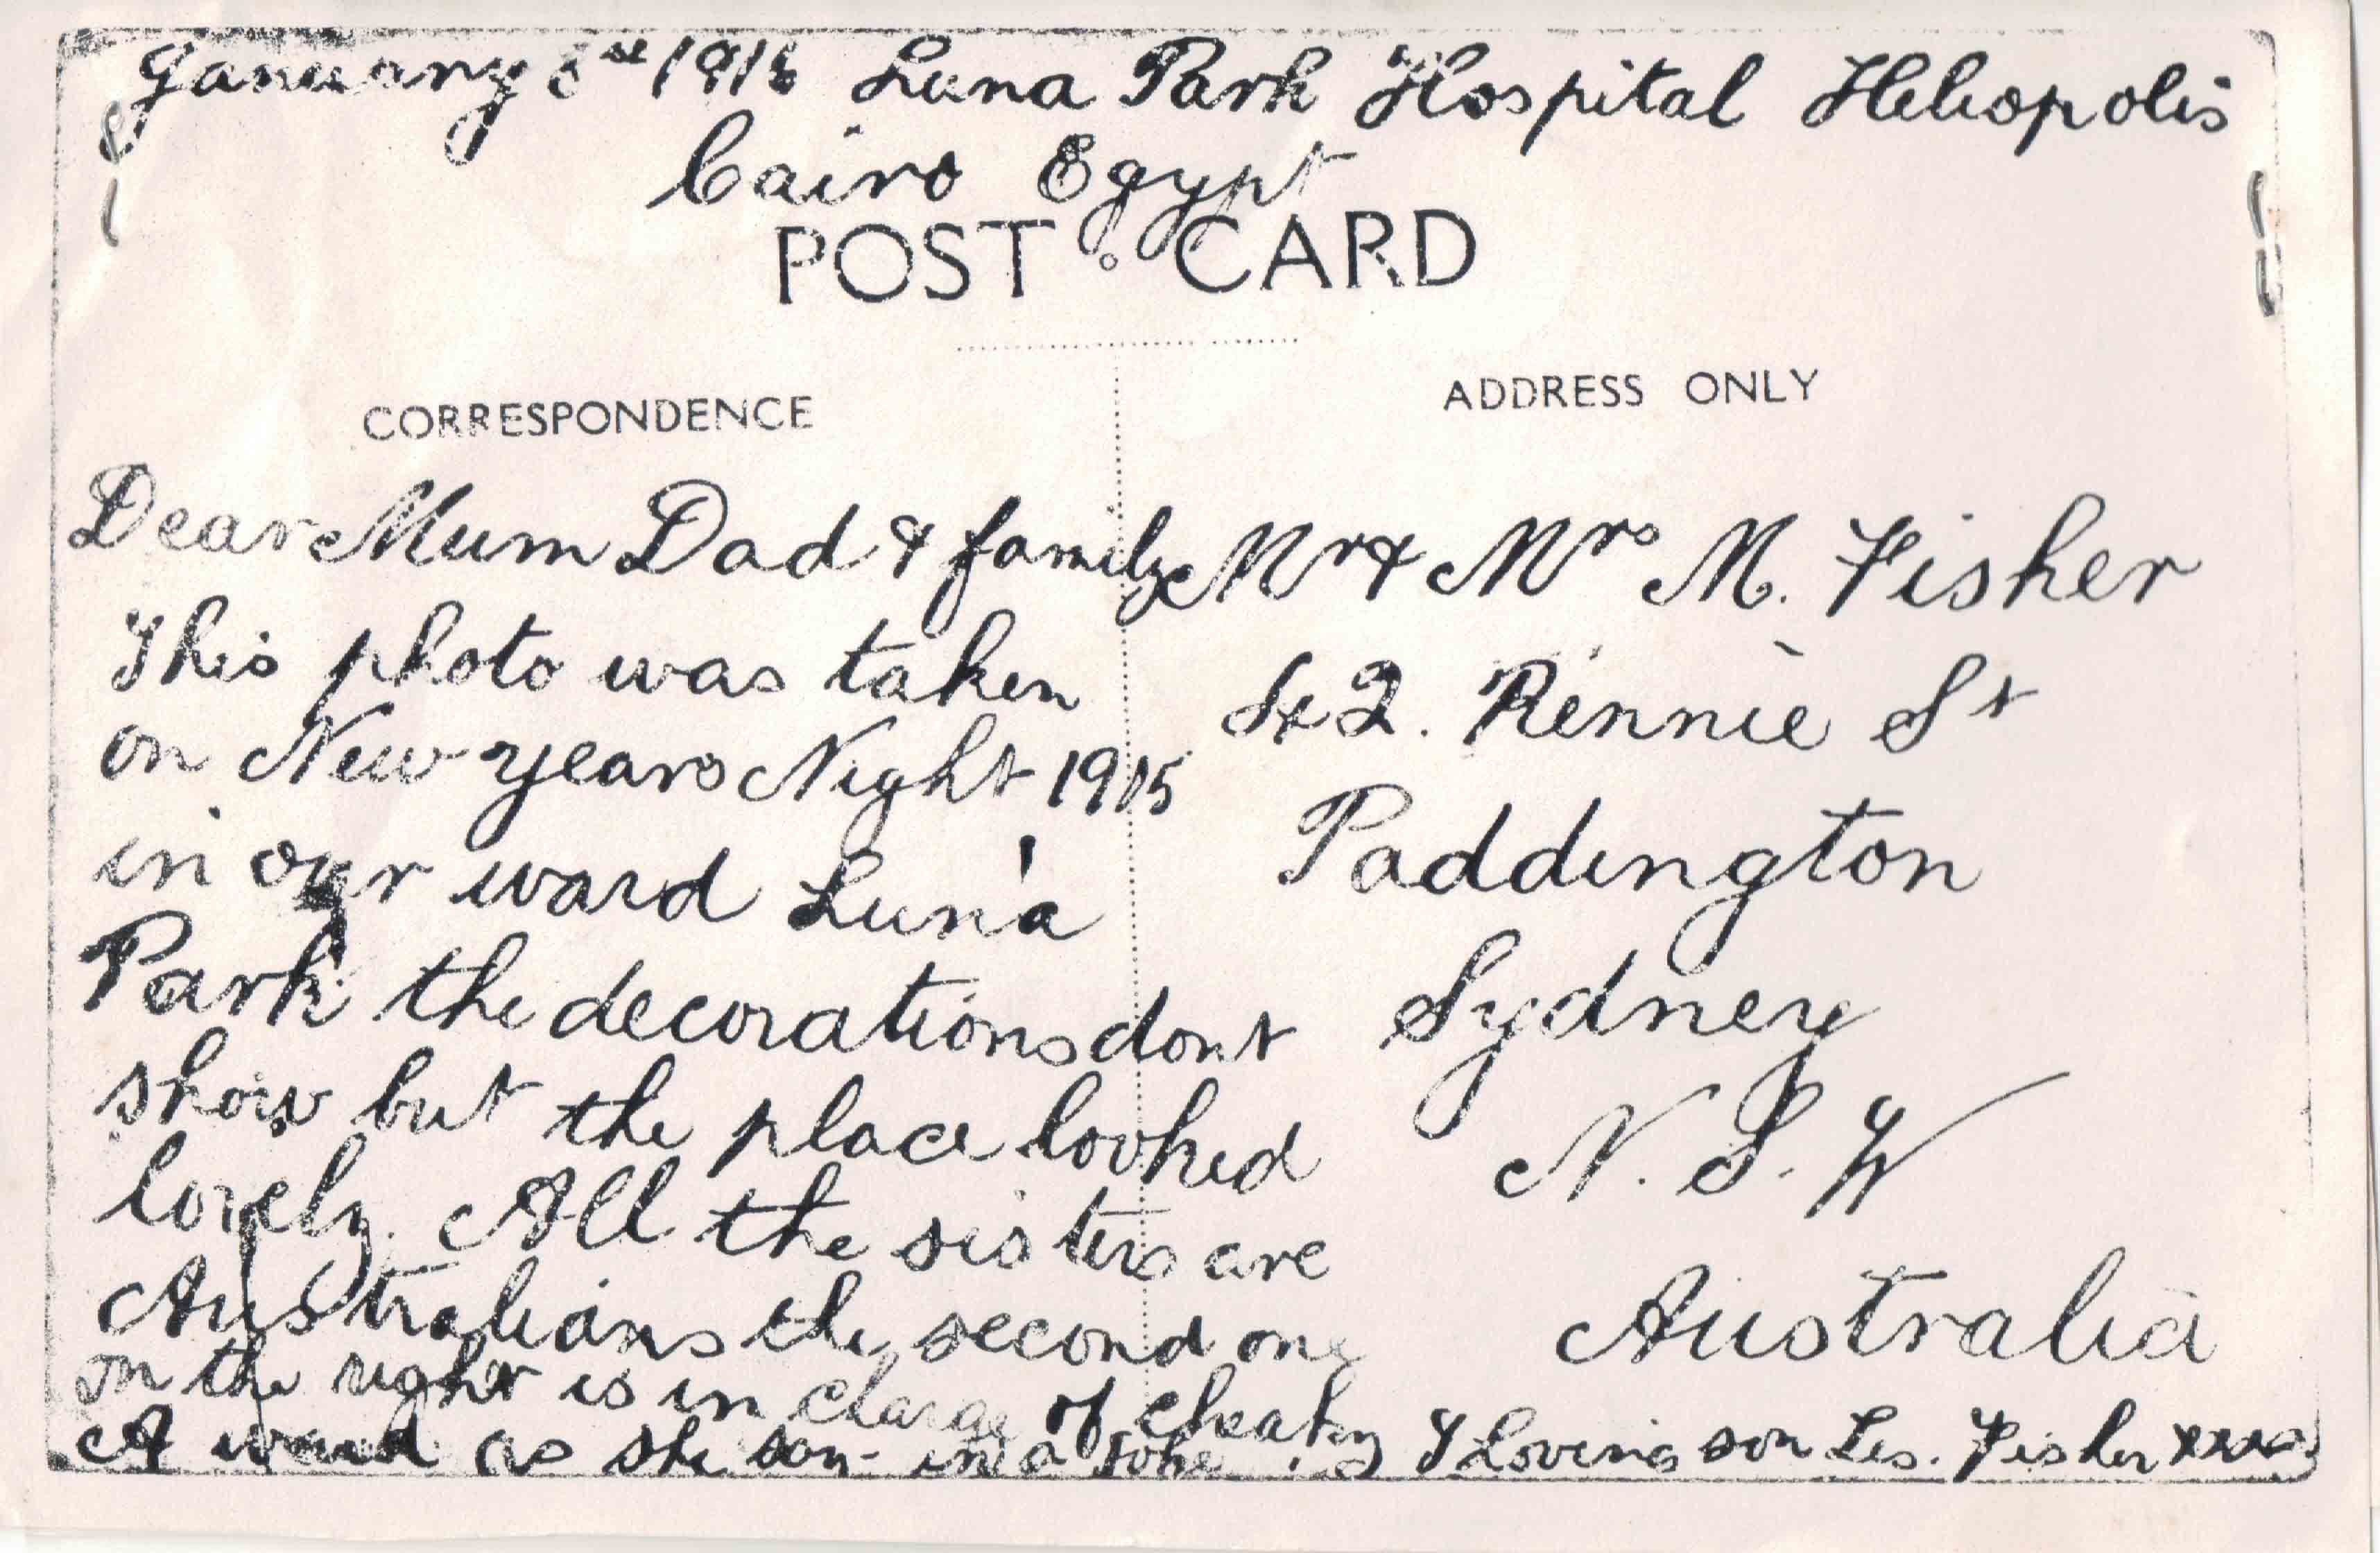 January 8st 1916 Luna Park Hospital Heliopolis
Cairo Egypt
POST CARD
CORRESPONDENCE
ADDRESS ONLY
Dear Mum Dad & family
This photo was taken
on New years Night 1915
in our ward Luna
Park the decorations dont
show but the place looked
lovely. All the sisters are
Australians the second one
on the right is in charge of cheaky
A ward as she in a
Mr & Mrs M. Fisher
42. Rennie St
Paddington
Sydney
N. S. W
Australia
Loving son Les. Fisher xxxx